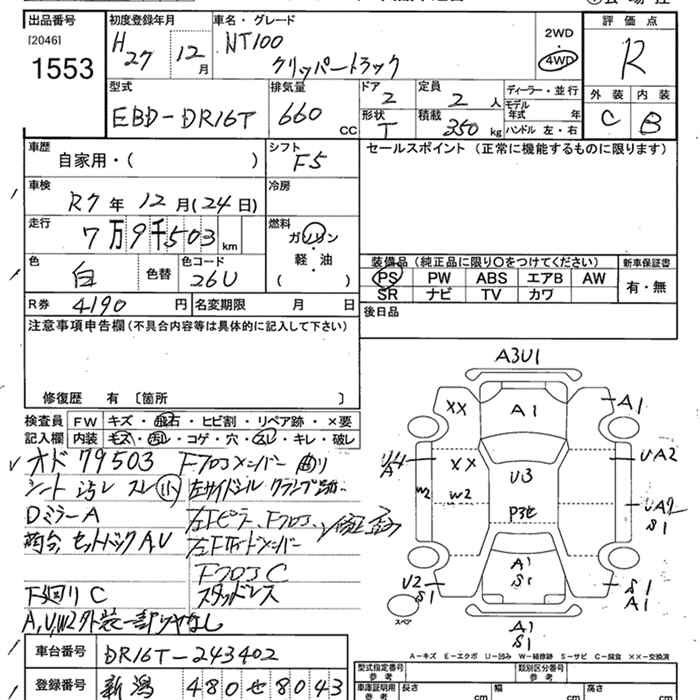 出品番号
[2046]
1553
初度登録年月
H27 12月
車名・グレード
NT100
クリッパートラック
2WD
4WD
評価点
R
外装 内装
C B
型式
EBD-DR16T
排気量
660 CC
ドア
2
形状
T
定員
2 人
積載
350 kg
ディーラー・並行
モデル年式 年
ハンドル 左・右
車歴
自家用・( )
シフト
F5
セールスポイント (正常に機能するものに限ります)
車検
R7年12月(24日)
冷房
走行
7万9千503 km
燃料
ガソリン
・
軽油
( )
色
白
色替
色コード
26U
装備品 (純正品に限り○をつけてください)
新車保証書
PS PW ABS エアB AW
有・無
SR ナビ TV カワ
R券 4190 円
名変期限 月 日
後日品
注意事項申告欄 (不具合内容等は具体的に記入して下さい)
修復歴 有 〔箇所 〕
検査員記入欄
FW キズ・飛石・ヒビ割・リペア跡・×要
内装 キズ・汚レ・コゲ・穴・スレ・キレ・破レ
オド 79503
Fフロメンバー 曲り
シート 汚レ スレ 小
左サイドシル クランプ跡
DミラーA
左Fピラー、Fフロア、修正歪み
荷台 セットバックA,U
左Fサイドメンバー
FフロアC
下廻りC
スタッドレス
A,U,W2外装一部
なし
A3U1
XX
A1
A1
U4
A
XX
W2
W2
U3
P3セ
UA2
UA2
S1
A1
S1
U2
S1
S1
A1
スペア
A1
S1
A-キズ E-エクボ U-凹み W-補修跡 S-サビ C-腐食 ××-交換済
車台番号
DR16T-243402
登録番号
新潟 480せ8043
型式指定番号
参考
類別区分番号
参考
車庫証明用
参考
長さ cm
幅 cm
高さ cm